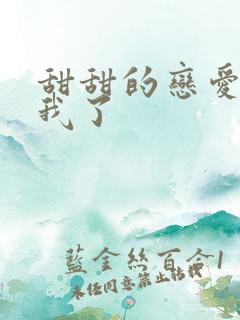 甜甜的戀愛
我了
藍金絲百合1
未經同意禁止轉載